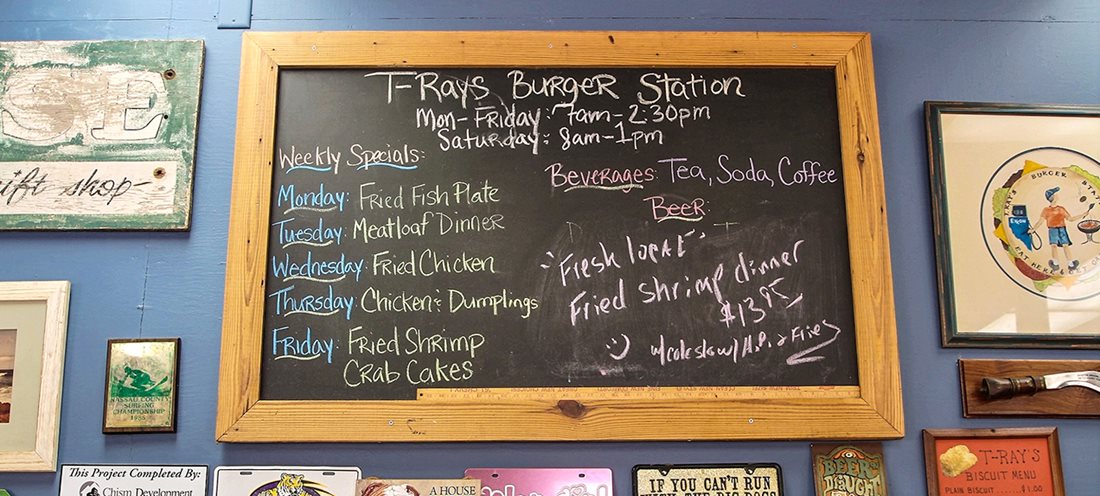 T-Rays Burger Station
Mon-Friday: 7am-2:30pm
Saturday: 8am-1pm
Weekly Specials:
Monday: Fried Fish Plate
Tuesday: Meatloaf Dinner
Wednesday: Fried Chicken
Thursday: Chicken & Dumplings
Friday: Fried Shrimp
Crab Cakes
Beverages: Tea, Soda, Coffee
Beer:
Fresh local
Fried shrimp dinner
$13.95
w/coleslaw/H.P. & Fries
SE
gift shop-
NASSAU COUNTY
SURFING
CHAMPIONSHIP
T-RAYS BURGER STATION
EAT HERE & GET GAS
This Project Completed By:
Chism Development
A HOUSE
IF YOU CAN'T RUN
WITH THE BIG DOGS
BEER
DRAUGHT
T-RAY'S
BISCUIT MENU
PLAIN BISCUIT